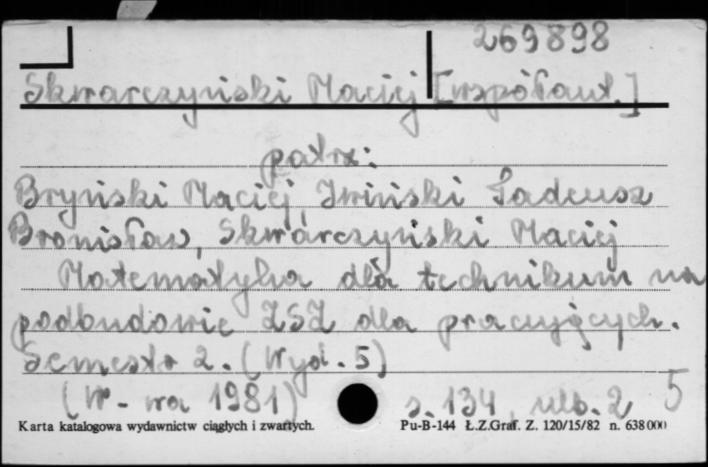 269898
Skwarczyński Maciej [współaut.]
patrz:
Bryński Maciej, Iwiński Tadeusz
Bronisław, Skwarczyński Maciej
Matematyka dla technikum na
podbudowie ZSZ dla pracujących.
Semestr 2. (Wyd. 5)
(W-wa 1981) s. 134, nlb. 2 5
Karta katalogowa wydawnictw ciągłych i zwartych. Pu-B-144 Ł.Z.Graf. Z. 120/15/82 n. 638000